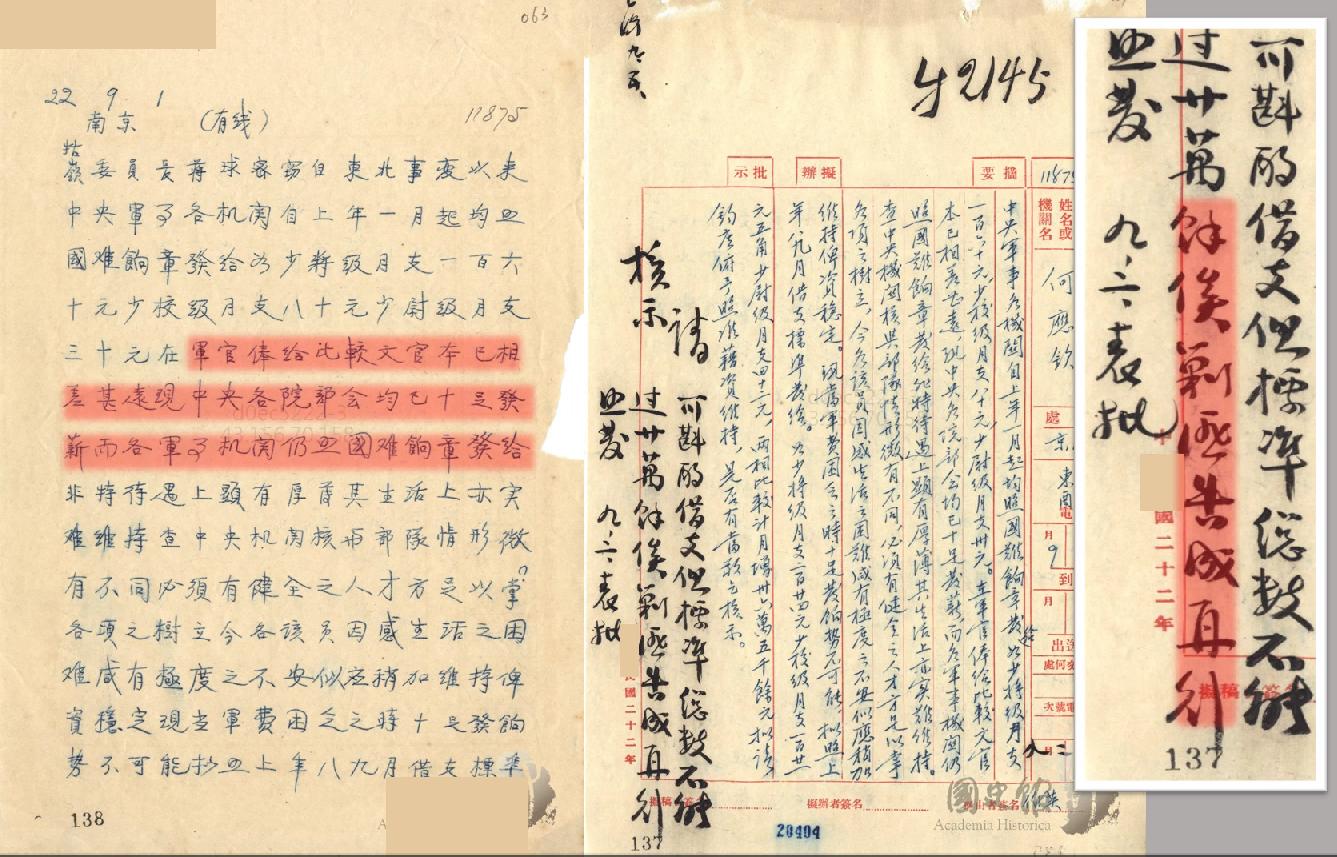 063
22 9 1
南京 （有线）
11875
牯嶺
委員長蒋球密窃自東北事変以来
中央軍事各机関自上年一月起均照
國难餉章發给为少將級月支一百六
十元少校級月支八十元少尉級月支
三十元在軍官俸给比較文官本已相
差甚遠現中央各院部会均已十足發
薪而各軍事机関仍照國难餉章發给
非特待遇上顕有厚薄其生活上亦实
难維持查中央机関核与部隊情形微
有不同必須有健全之人才方足以掌
各項之樹立今各該員因感生活之困
难咸有極度之不安似应稍加維持俾
資穩定現当軍費困仝之時十足發餉
势不可能拟照上年八九月借支標準
138
42145
11875
摘要
擬辦
批示
姓名或機關名
何應欽
處
京
東電
月
9
到
月
中央軍事各機関自上年一月起均照國難餉章發给少將級月支
一百六十元少校級月支八十元少尉級月支卅元。在軍官俸给比較文官
本已相差甚遠，現中央各院部会均已十足發薪而各軍事機関仍
照國難餉章發给非特待遇上顕有厚薄其生活上亦实難維持。
查中央機関核與部隊情形微有不同，必須有健全之人才方足以掌
各項之樹立，今各該員因感生活之困難咸有極度之不安似應稍加
維持俾資穩定。現當軍費困仝之時十足發餉势不可能，拟照上
年八九月借支標準發给。为少將級月支二百廿四元少校級月支一百廿
元五角少尉級月支四十二元，兩相比較計月增卅六萬五千餘元拟請
鈞座俯予照准藉資維持，是否有當敬乞核示。
請
核示
可斟酌借支但標準總数不能
过廿萬餘俟剿匪告成再行
照發 九、二、表批
國二十二年
擬稿者簽名
擬辦者簽名
20404
137
國史館
Academia Historica
可斟酌借支但標準總数不能
过廿萬餘俟剿匪告成再行
照發 九、二、表批
國二十二年
137